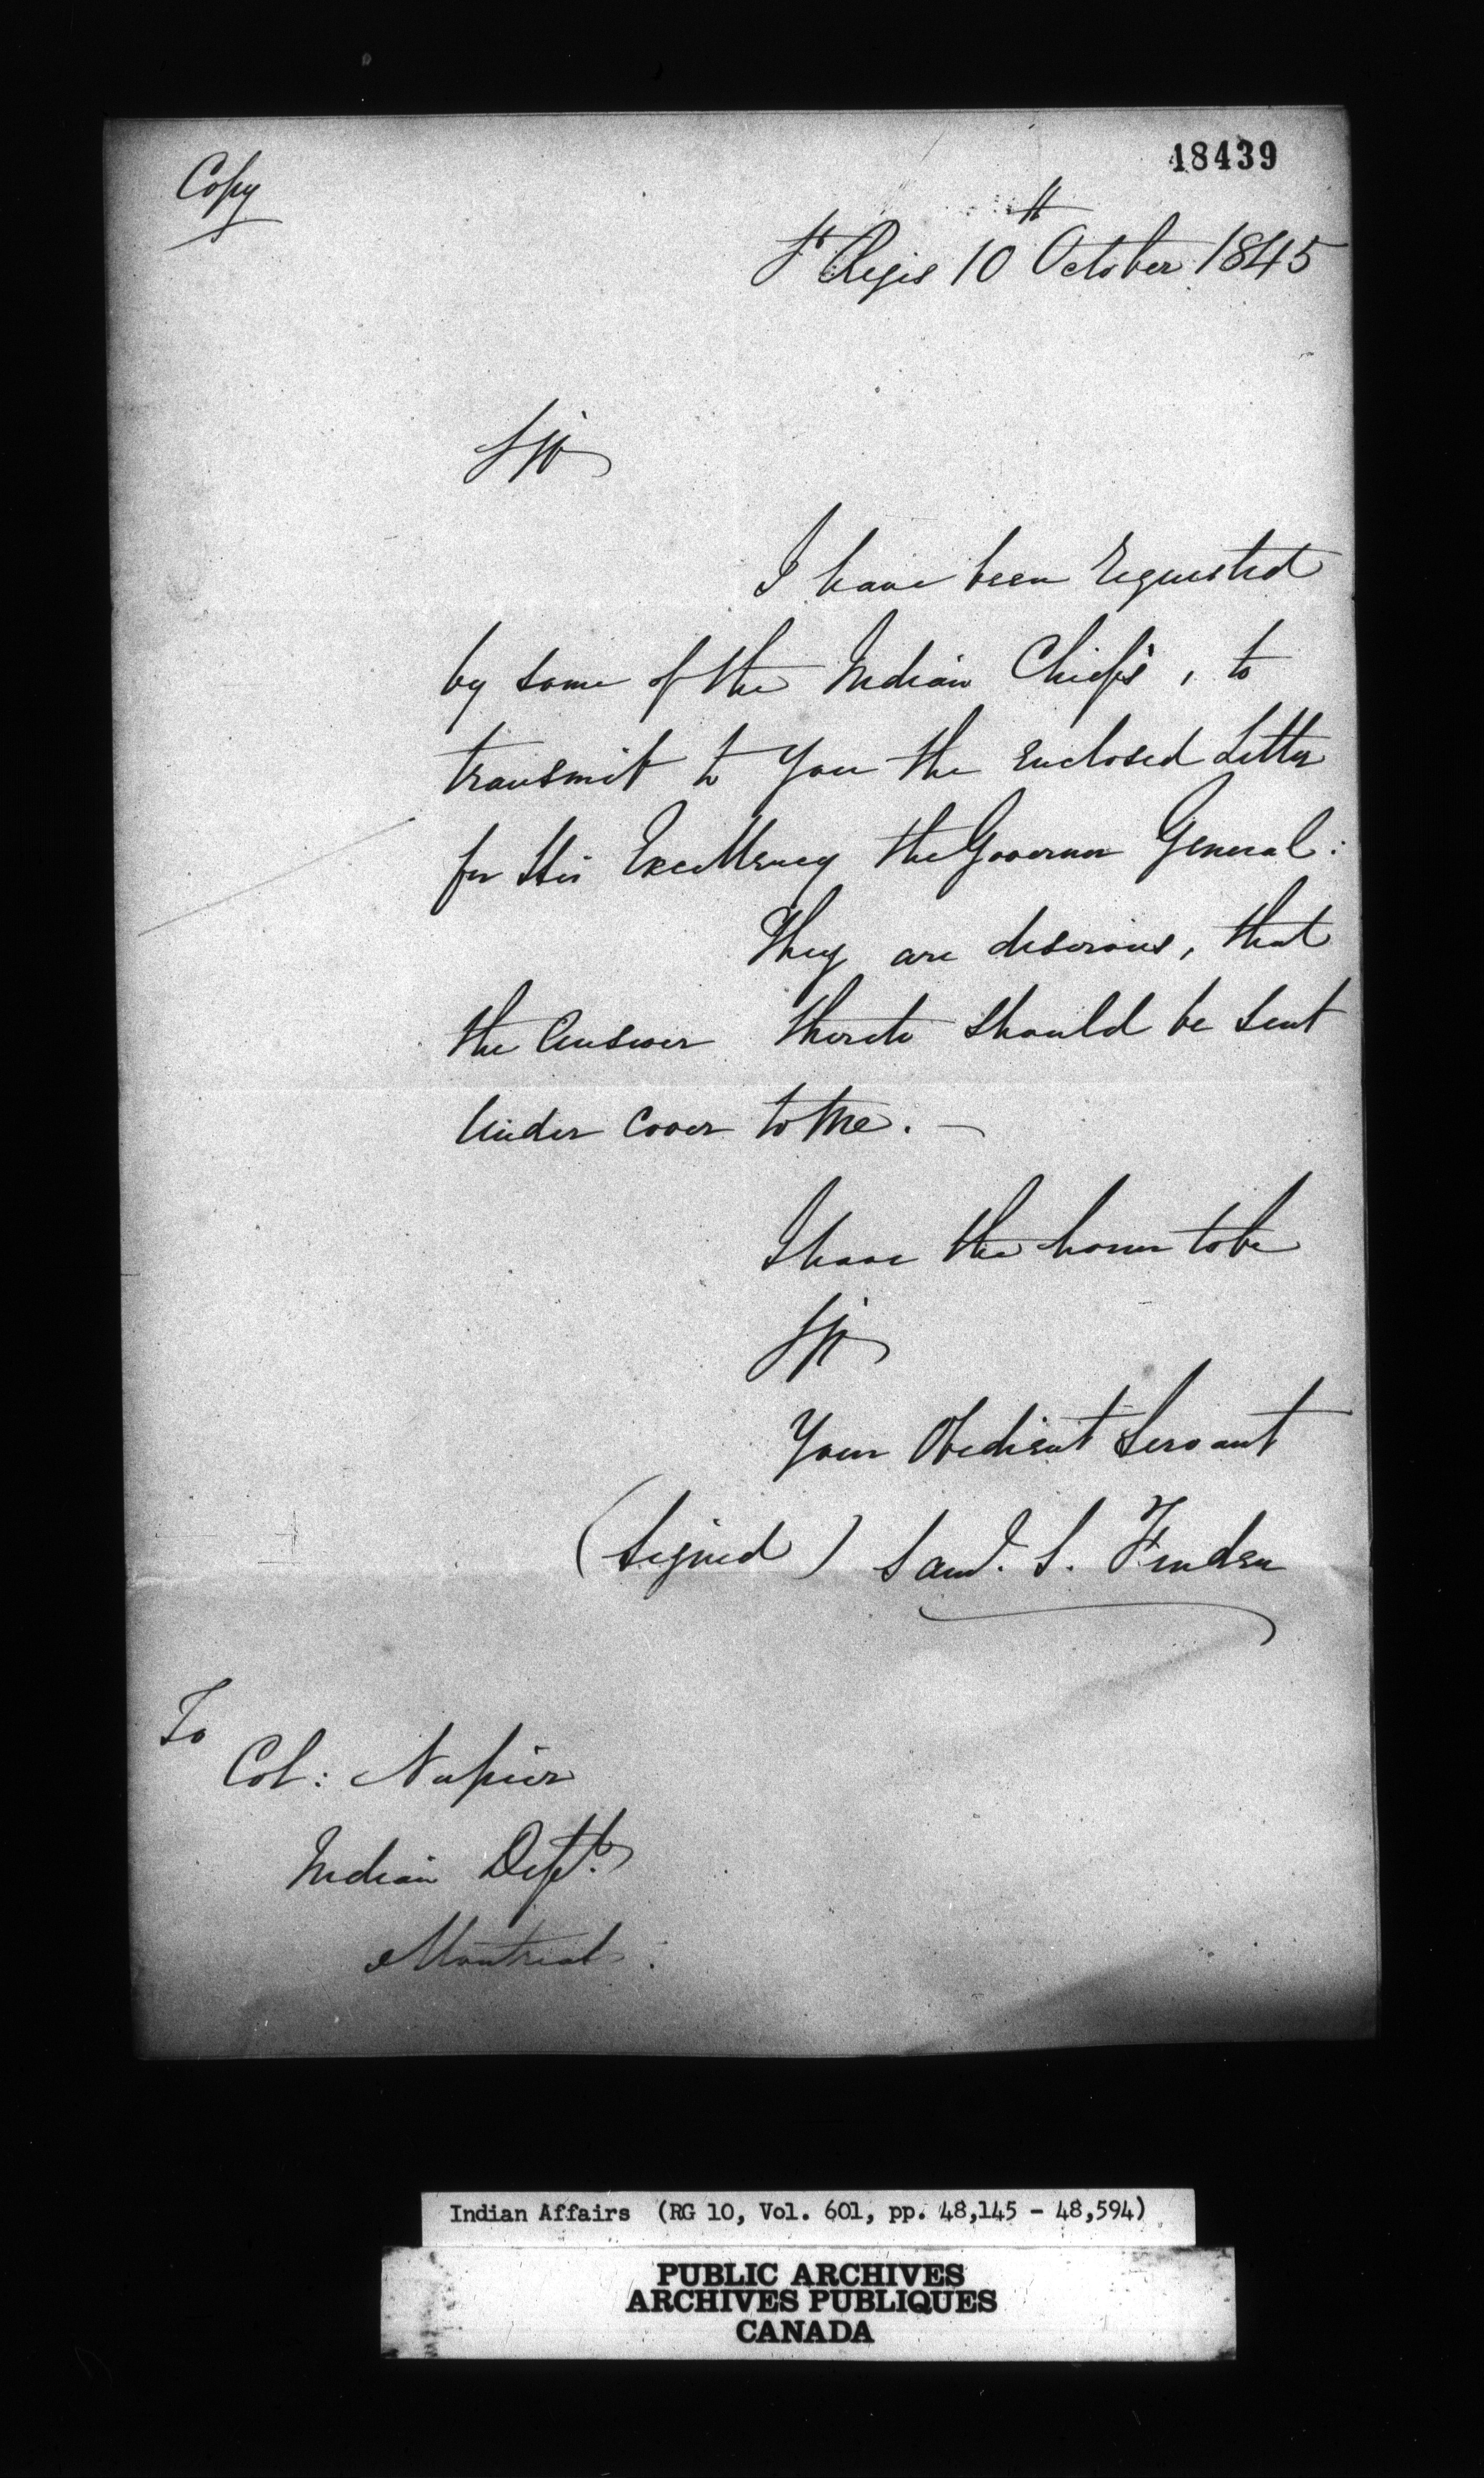 Copy
48439
St Regis 10th October 1845
Sir
I have been requested
by some of the Indian Chiefs, to
transmit to You the enclosed Letter
for His Excellency the Governor General:
They are desirous, that
the Answer thereto should be sent
Under Cover to Me. —
I have the honor to be
Sir
Your Obedient Servant
(Signed) Saml. S.
To
Col: Napier
Indian Dept.
Montreal.
Indian Affairs (RG 10, Vol. 601, pp. 48,145 - 48,594)
PUBLIC ARCHIVES
ARCHIVES PUBLIQUES
CANADA